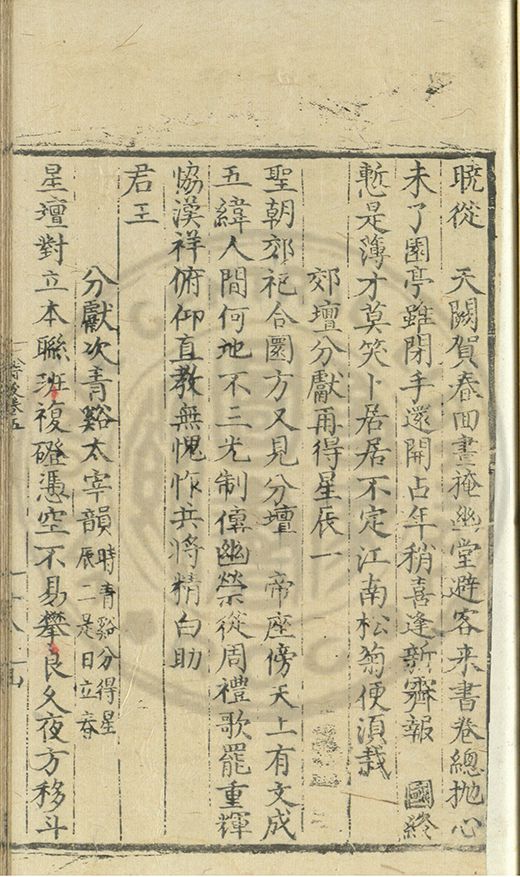 曉從　天闕賀春回晝掩幽堂避客来書卷總抛心
未了園亭雖閉手還開占年稍喜逢新霽報　國終
慙是薄才莫笑卜居居不定江南松菊便須栽
郊壇分獻再得星辰一
聖朝郊祀合圜方又見分壇　帝座傍天上有文成
五緯人間何地不三光制傳幽禜從周禮歌罷重輝
恊漢祥俯仰直教無愧怍共將精白助
君王
分獻次青谿太宰韻時青谿分得星辰二是日立春
星壇對立本聯班複磴憑空不易攀良久夜方移斗